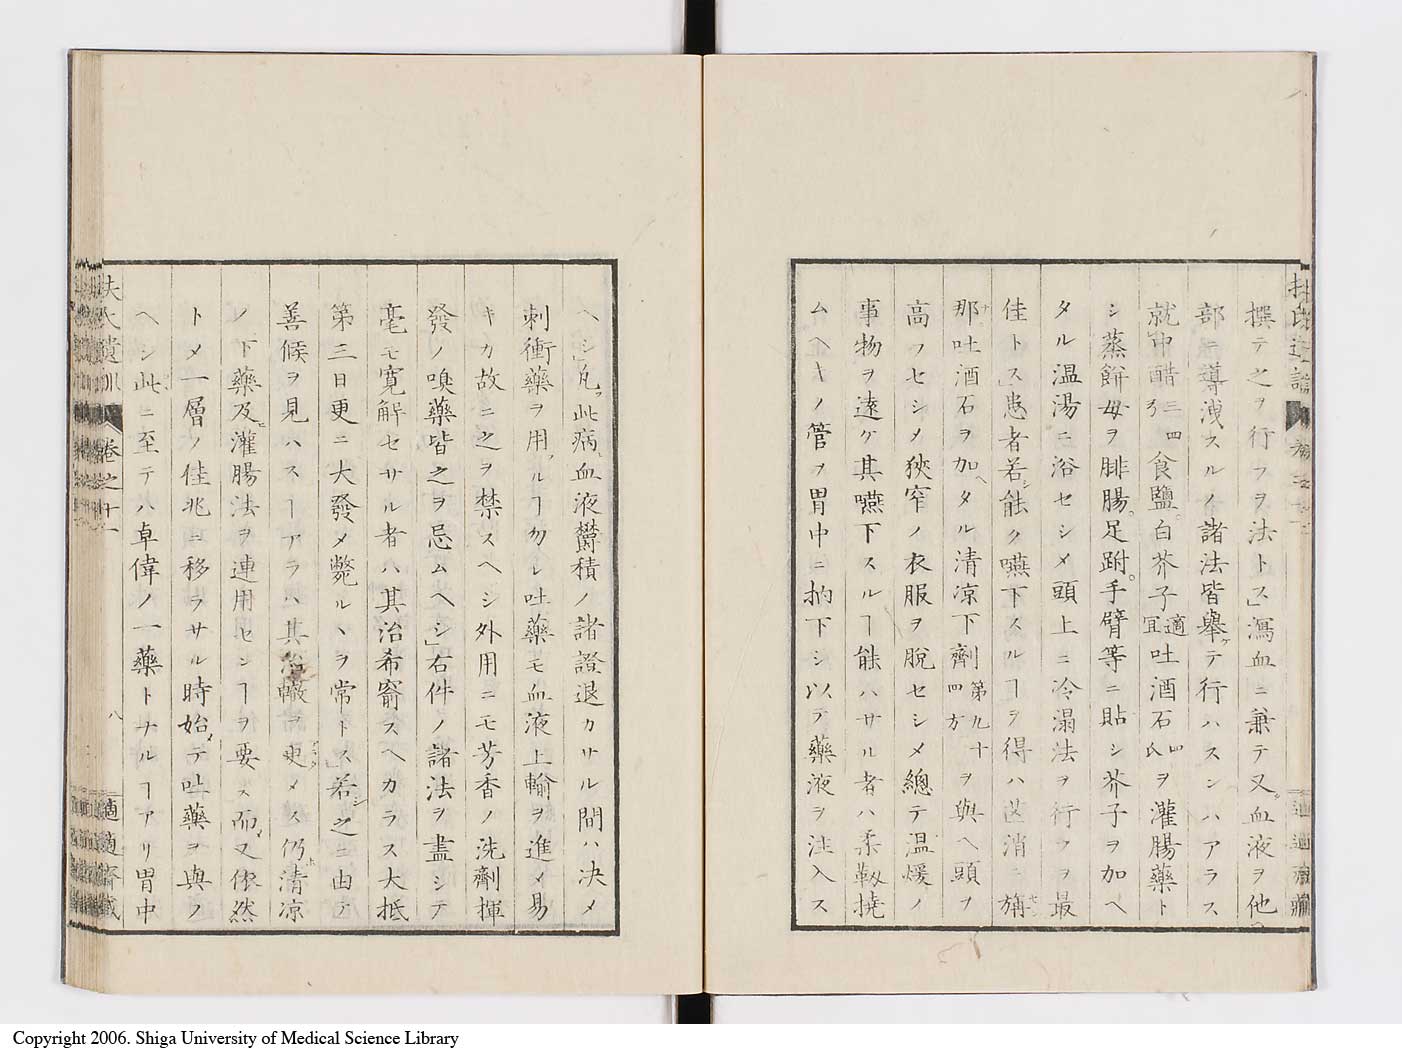 撰テ之ヲ行フヲ法トス」瀉血ニ兼テ又血液ヲ他
部ニ導洩スルノ諸法皆擧テ行ハスンハアラス
就中醋三四弓食鹽。白芥子適宜吐酒石四氏ヲ灌腸藥ト
シ蒸餅母ヲ腓腸。足跗。手臂等ニ貼シ芥子ヲ加ヘ
タル温湯ニ浴セシメ頭上ニ冷溻法ヲ行フヲ最
佳トス」患者若シ能ク嚥下スルヿヲ得ハ芒消ニ旃
那吐酒石ヲ加ヘタル清凉下劑第九十四方ヲ與ヘ頭ヲ
高フセシメ狹窄ノ衣服ヲ脫セシメ總テ温煖ノ
事物ヲ遠ケ其嚥下スルヿ能ハサル者ハ柔靱撓
ムヘキノ管ヲ胃中ニ抐下シ以テ藥液ヲ注入ス
ヘシ」凡ソ此病血液鬱積ノ諸證退カサル間ハ決メ
刺衝藥ヲ用ルヿ勿レ吐藥モ血液上輸ヲ進メ易
キカ故ニ之ヲ禁スヘシ外用ニモ芳香ノ洗劑揮
發ノ嗅藥皆之ヲ忌ムヘシ」右件ノ諸法ヲ盡シテ
毫モ寛解セサル者ハ其治希窬スヘカラス大抵
第三日更ニ大發メ斃ルヽヲ常トス」若シ之ニ由テ
善候ヲ見ハスヿアラハ其治轍ヲ更メス仍ホ清凉
ノ下藥及ヒ灌腸法ヲ連用センヿヲ要ス而メ又依然
トメ一層ノ佳兆ニ移ラサル時始メテ吐藥ヲ與フ
ヘシ此ニ至テハ卓偉ノ一藥トナルヿアリ胃中
扶氏遺訓 卷之十一
八
適適齋藏